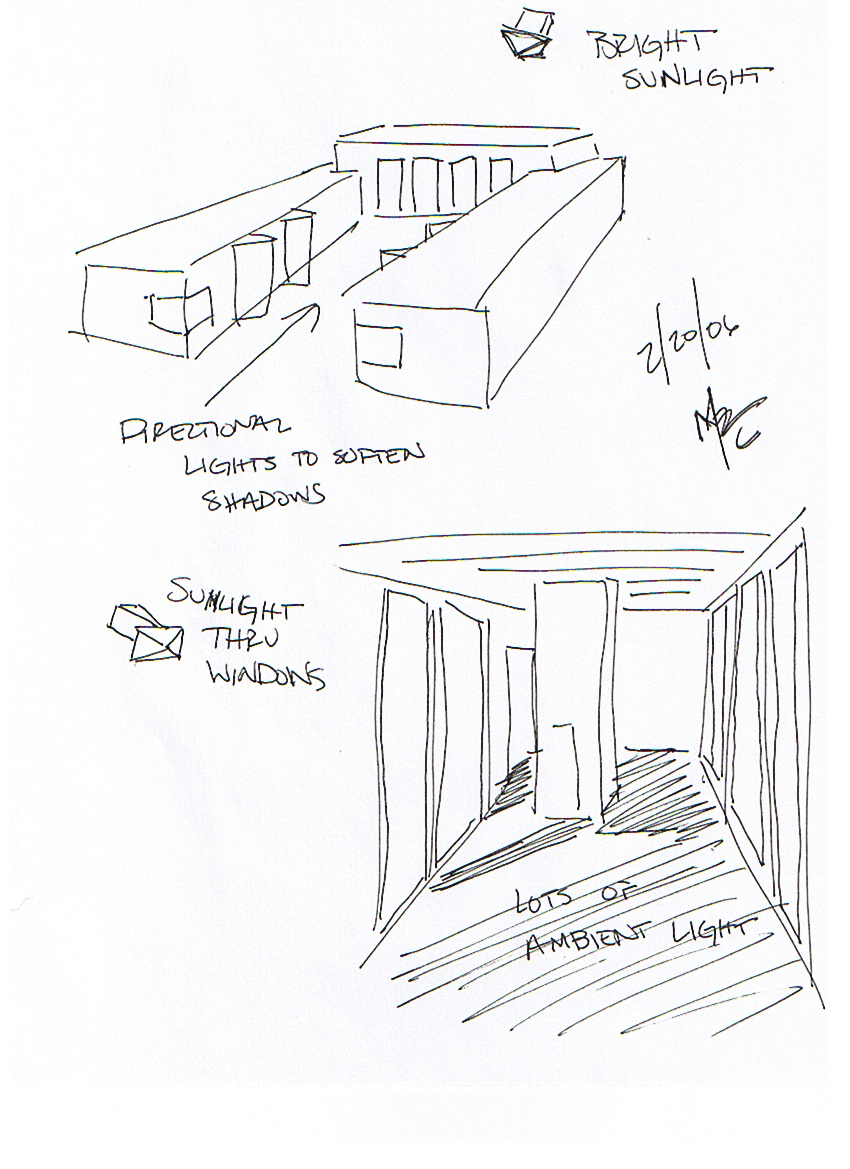 BRIGHT
SUNLIGHT
2/20/06
DIRECTIONAL
LIGHTS TO SOFTEN
SHADOWS
SUNLIGHT
THRU
WINDOWS
LOTS OF
AMBIENT LIGHT